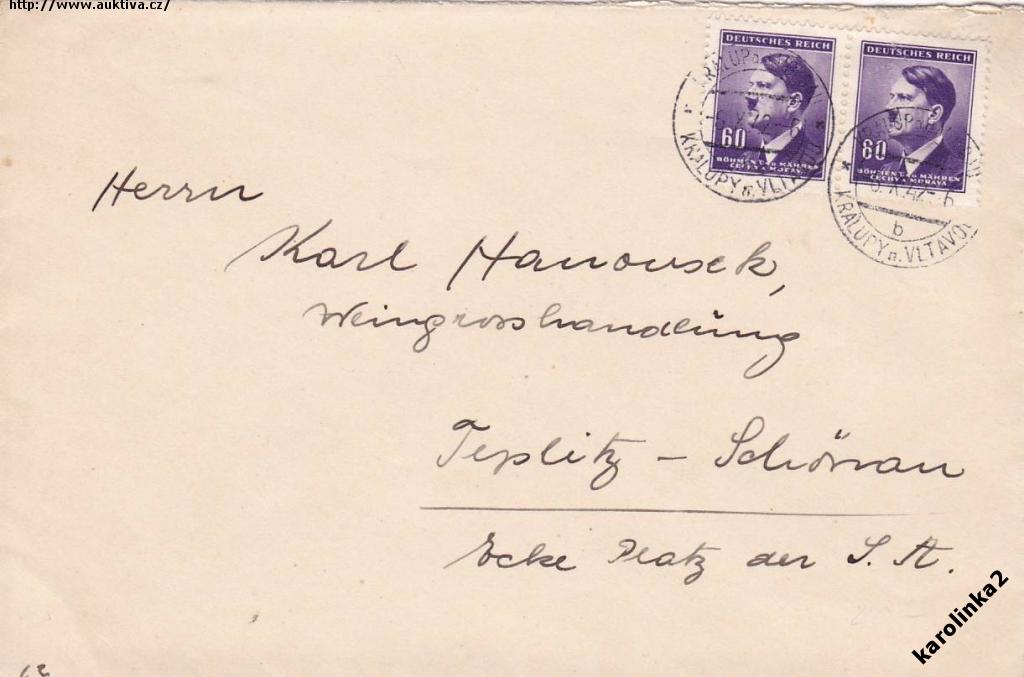 http://www.auktiva.cz/
DEUTSCHES REICH
60
BÖHMEN U. MÄHREN
ČECHY A MORAVA
DEUTSCHES REICH
60
BÖHMEN U. MÄHREN
ČECHY A MORAVA
KRALUPY n. VLTAVOU
X 42
KRALUPY n. VLTAVOU
X. 42 - 6
b
Herrn
Karl Hanousek,
Weingrosshandlung
Teplitz - Schönau
Ecke Platz der S. A.
karolinka2